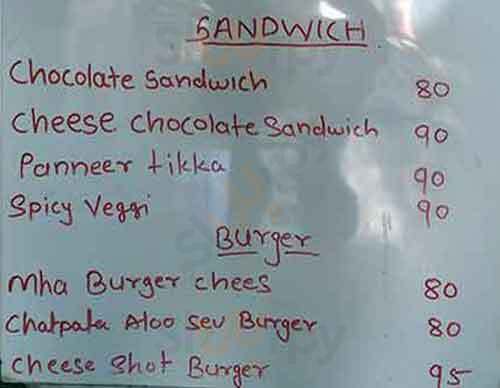 SANDWICH
Chocolate Sandwich 80
Cheese Chocolate Sandwich 90
Panneer tikka 90
Spicy Veggi 90
Burger
Mha Burger chees 80
Chatpata Aloo Sev Burger 80
Cheese Shot Burger 95